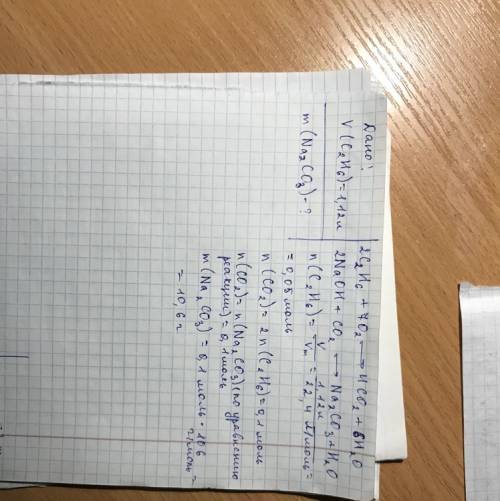 Дано:
V(C₂H₆)=1,12л
m(Na₂CO₃)-?
2C₂H₆ + 7O₂ ⟶ 4CO₂ + 6H₂O
2NaOH + CO₂ ⟶ Na₂CO₃ + H₂O
n(C₂H₆) = V/Vm = 1,12л/22,4 л/моль =
= 0,05 моль
n(CO₂) = 2n(C₂H₆) = 0,1 моль
n(CO₂) = n(Na₂CO₃) (по уравнению
реакции) = 0,1 моль
m(Na₂CO₃) = 0,1 моль · 106
г/моль =
= 10,6 г